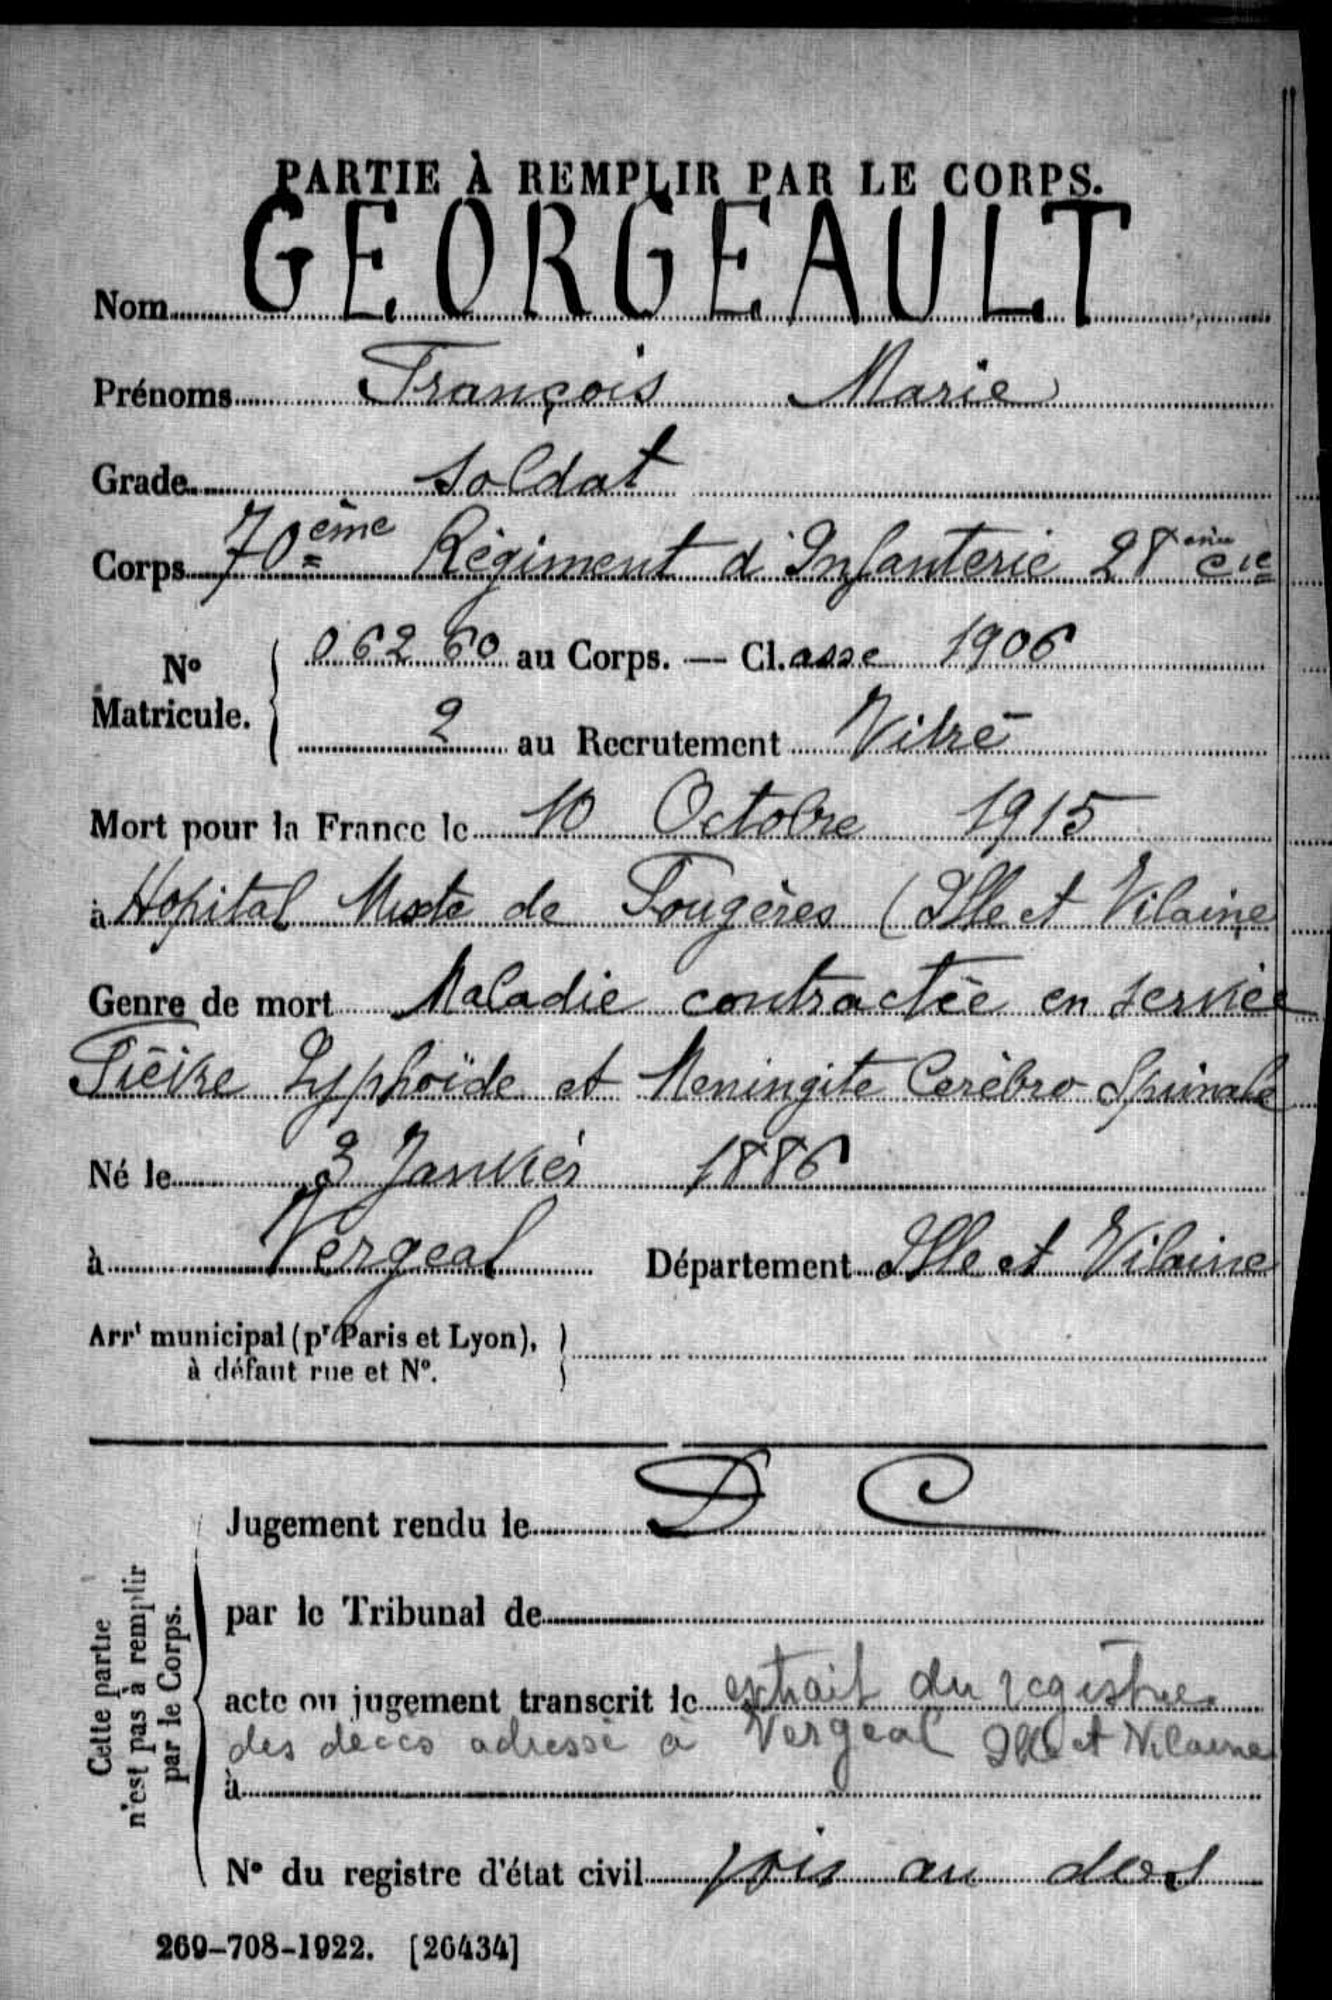 PARTIE À REMPLIR PAR LE CORPS.
Nom GEORGEAULT
Prénoms François Marie
Grade soldat
Corps 70ème Régiment d'Infanterie 28ème Cie
No Matricule. 06260 au Corps. — Cl.asse 1906
2 au Recrutement Vitré
Mort pour la France le 10 Octobre 1915
à Hopital Mixte de Fougères (Ille et Vilaine
Genre de mort Maladie contractée en service
Fièvre Typhoïde et Meningite Cerébro Spinale
Né le 3 Janvier 1886
à Vergeal Département Ille et Vilaine
Arrt municipal (pr Paris et Lyon),
à défaut rue et No.
D C
Jugement rendu le
par le Tribunal de
acte ou jugement transcrit le extrait du registre
des deces adressé à Vergeal Ille et Vilaine
à
No du registre d'état civil vois au dos
Cette partie
n'est pas à remplir
par le Corps.
269-708-1922. [26434]